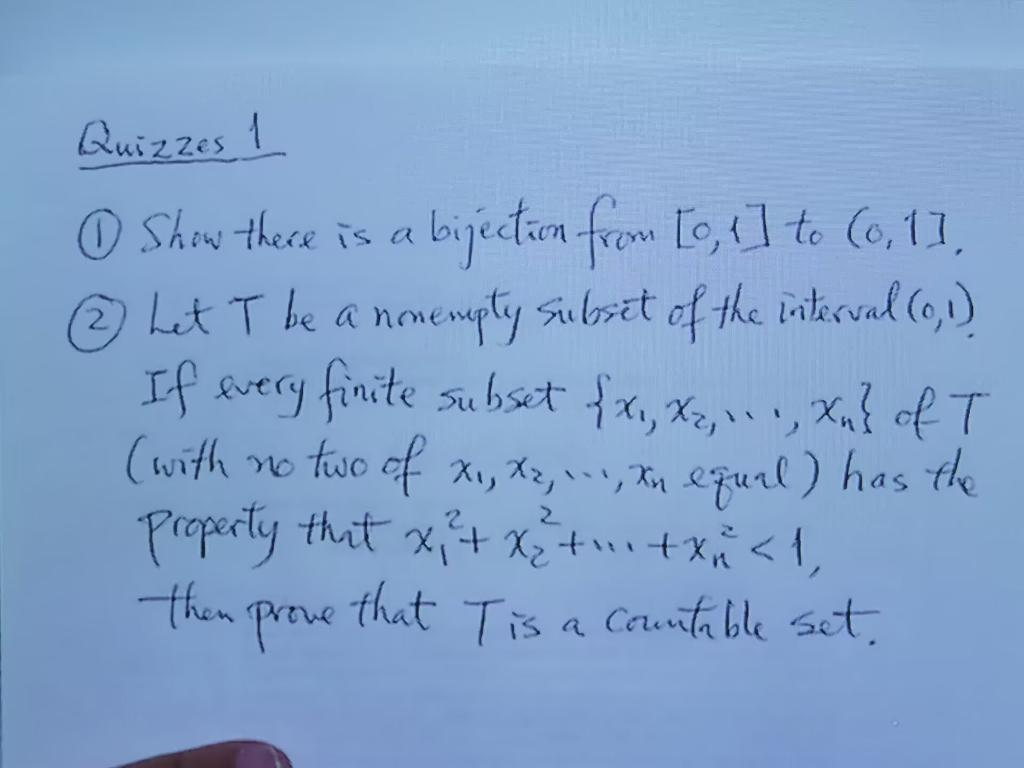 Quizzes 1
① Show there is a bijection from [0,1] to (0,1].
② Let T be a nonempty subset of the interval (0,1).
If every finite subset {x₁, x₂, ..., xₙ} of T
(with no two of x₁, x₂, ..., xₙ equal) has the
property that x₁² + x₂² + ... + xₙ² < 1,
then prove that T is a countable set.